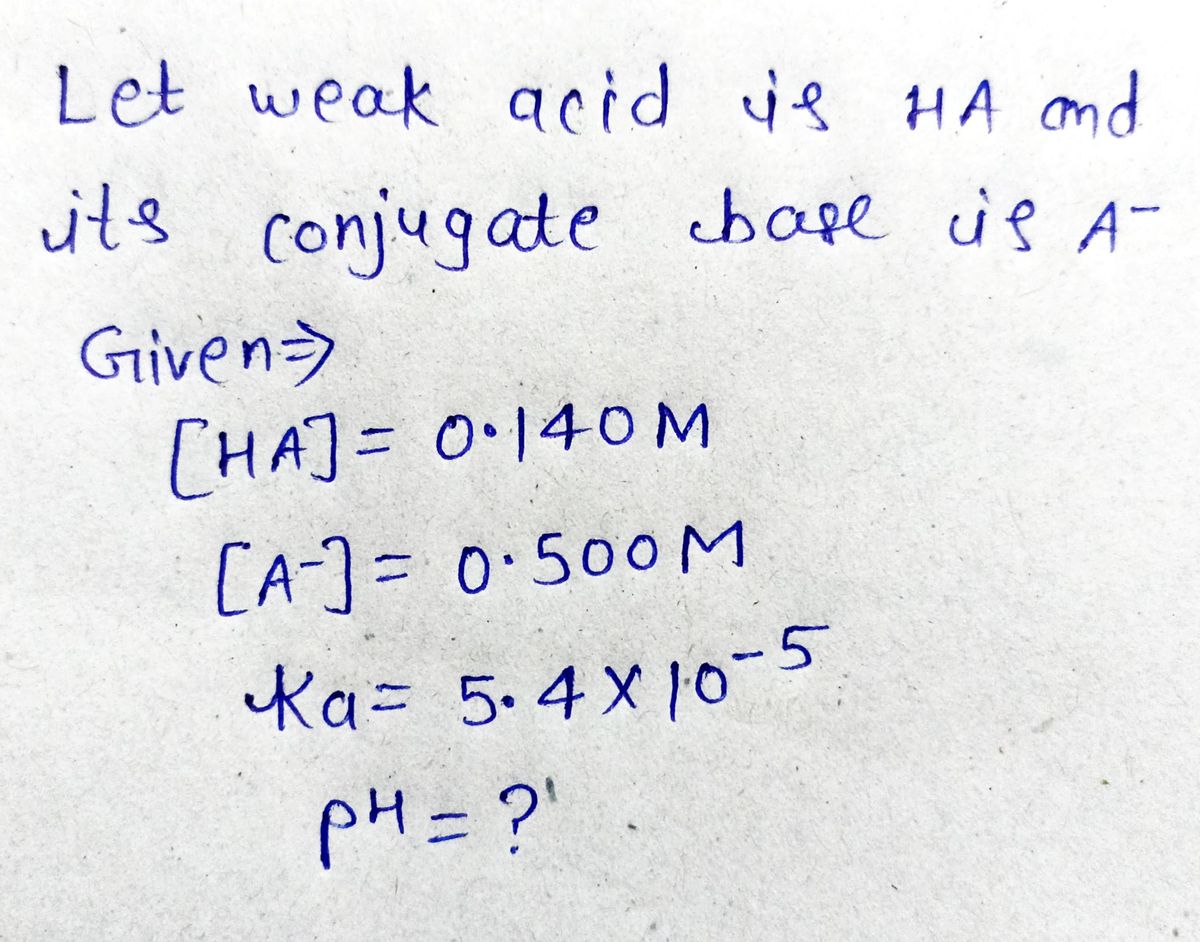 Let weak acid is HA and
its conjugate base is A⁻
Given⇒
[HA] = 0.140 M
[A⁻] = 0.500 M
Ka = 5.4 × 10⁻⁵
pH = ?